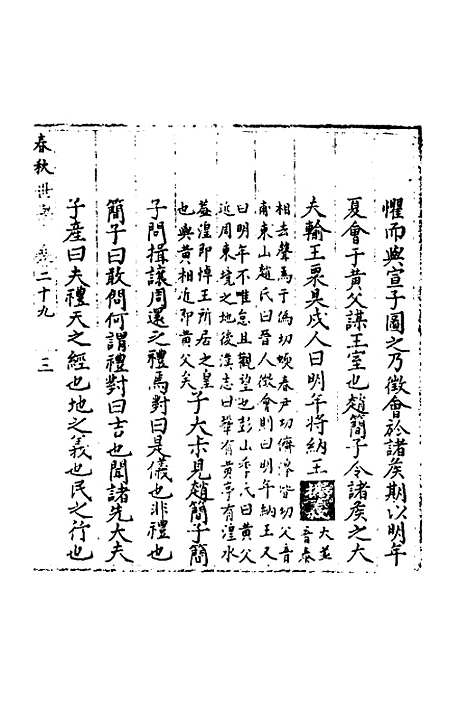 懼而與宣子圖之乃徵會於諸矦期以明年
夏會于黄父謀王室也趙簡子令諸矦之大
夫輸王粟具戍人曰明年將納王
大並音泰
相去聲焉于偽切蠙春尹切父音
甫東山趙氏曰晉人徵會則曰明年納王又
曰明年不惟怠且觀望也彭山季氏曰黄父
近周東境之地後漢志曰有黄亭有湟水
葢湟即悼王所居之皇
也與黄相近即黄父矣
子大叔見趙簡子簡
子問揖讓周還之禮焉對曰是儀也非禮也
簡子曰敢問何謂禮對曰吉也聞諸先大夫
子產曰夫禮天之經也地之義也民之行也
春秋世學 卷二十九 三